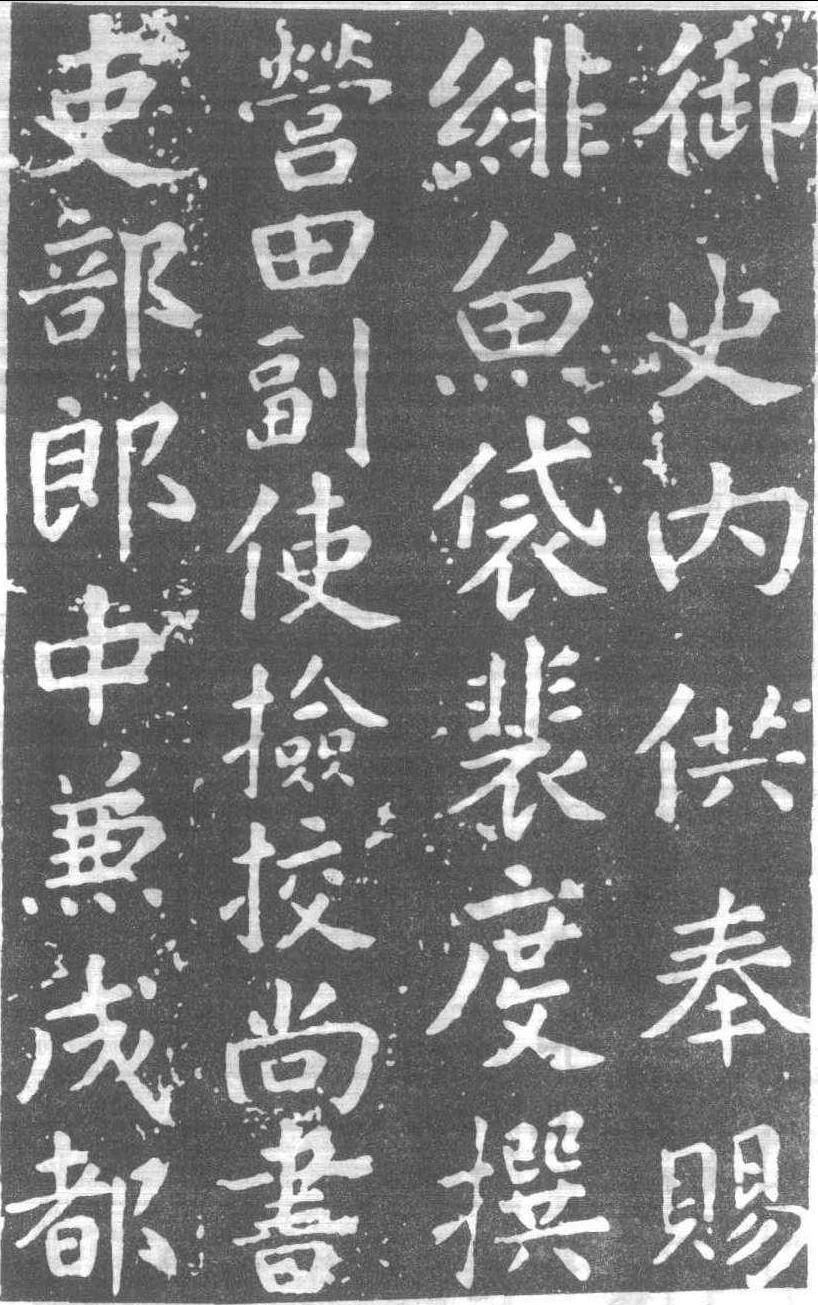 御史内供奉賜
緋魚袋裴度撰
營田副使撿挍尚書
吏部郎中兼成都